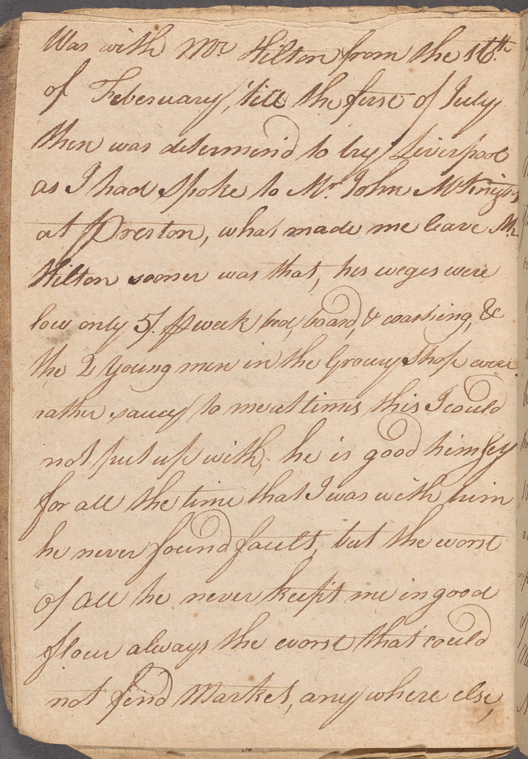 Was with Mr Hilton from the 16th
of Feberuary, 'till the first of July
then was determind to try Liverpool
as I had spoke to Mr. John McKnight
at Preston, what made me leave Mr
Hilton sooner was that, his weges were
low only 5/. pr week bed, board, & washing, &
the 2 young men in the Grocery Shop were
rather saucy to me at times this I could
not put up with, he is good himself
for all the time that I was with him
he never found fault, but the worst
of all he never keept me in good
flour always the worst that could
not find Market, any where else,